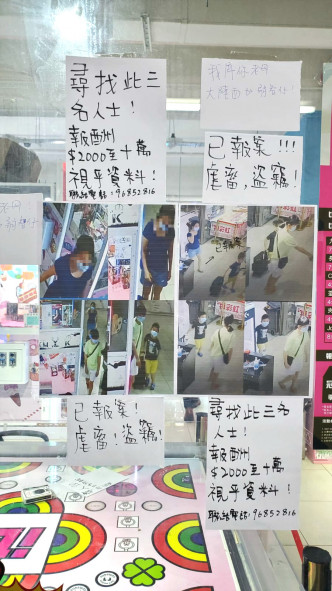 尋找此三
名人士！
報酬
$2000至十萬
視乎資料！
聯絡電話：96852816
已報案！！！
虐畜，盜竊！
已報案！
虐畜，盜竊！
尋找此三名
人士！
報酬
$2000至十萬
視乎資料！
聯絡電話：96852816